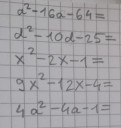 a²-16a-64=
d²-10d-25=
x²-2x-1=
9x²-12x-4=
4a²-4a-1=